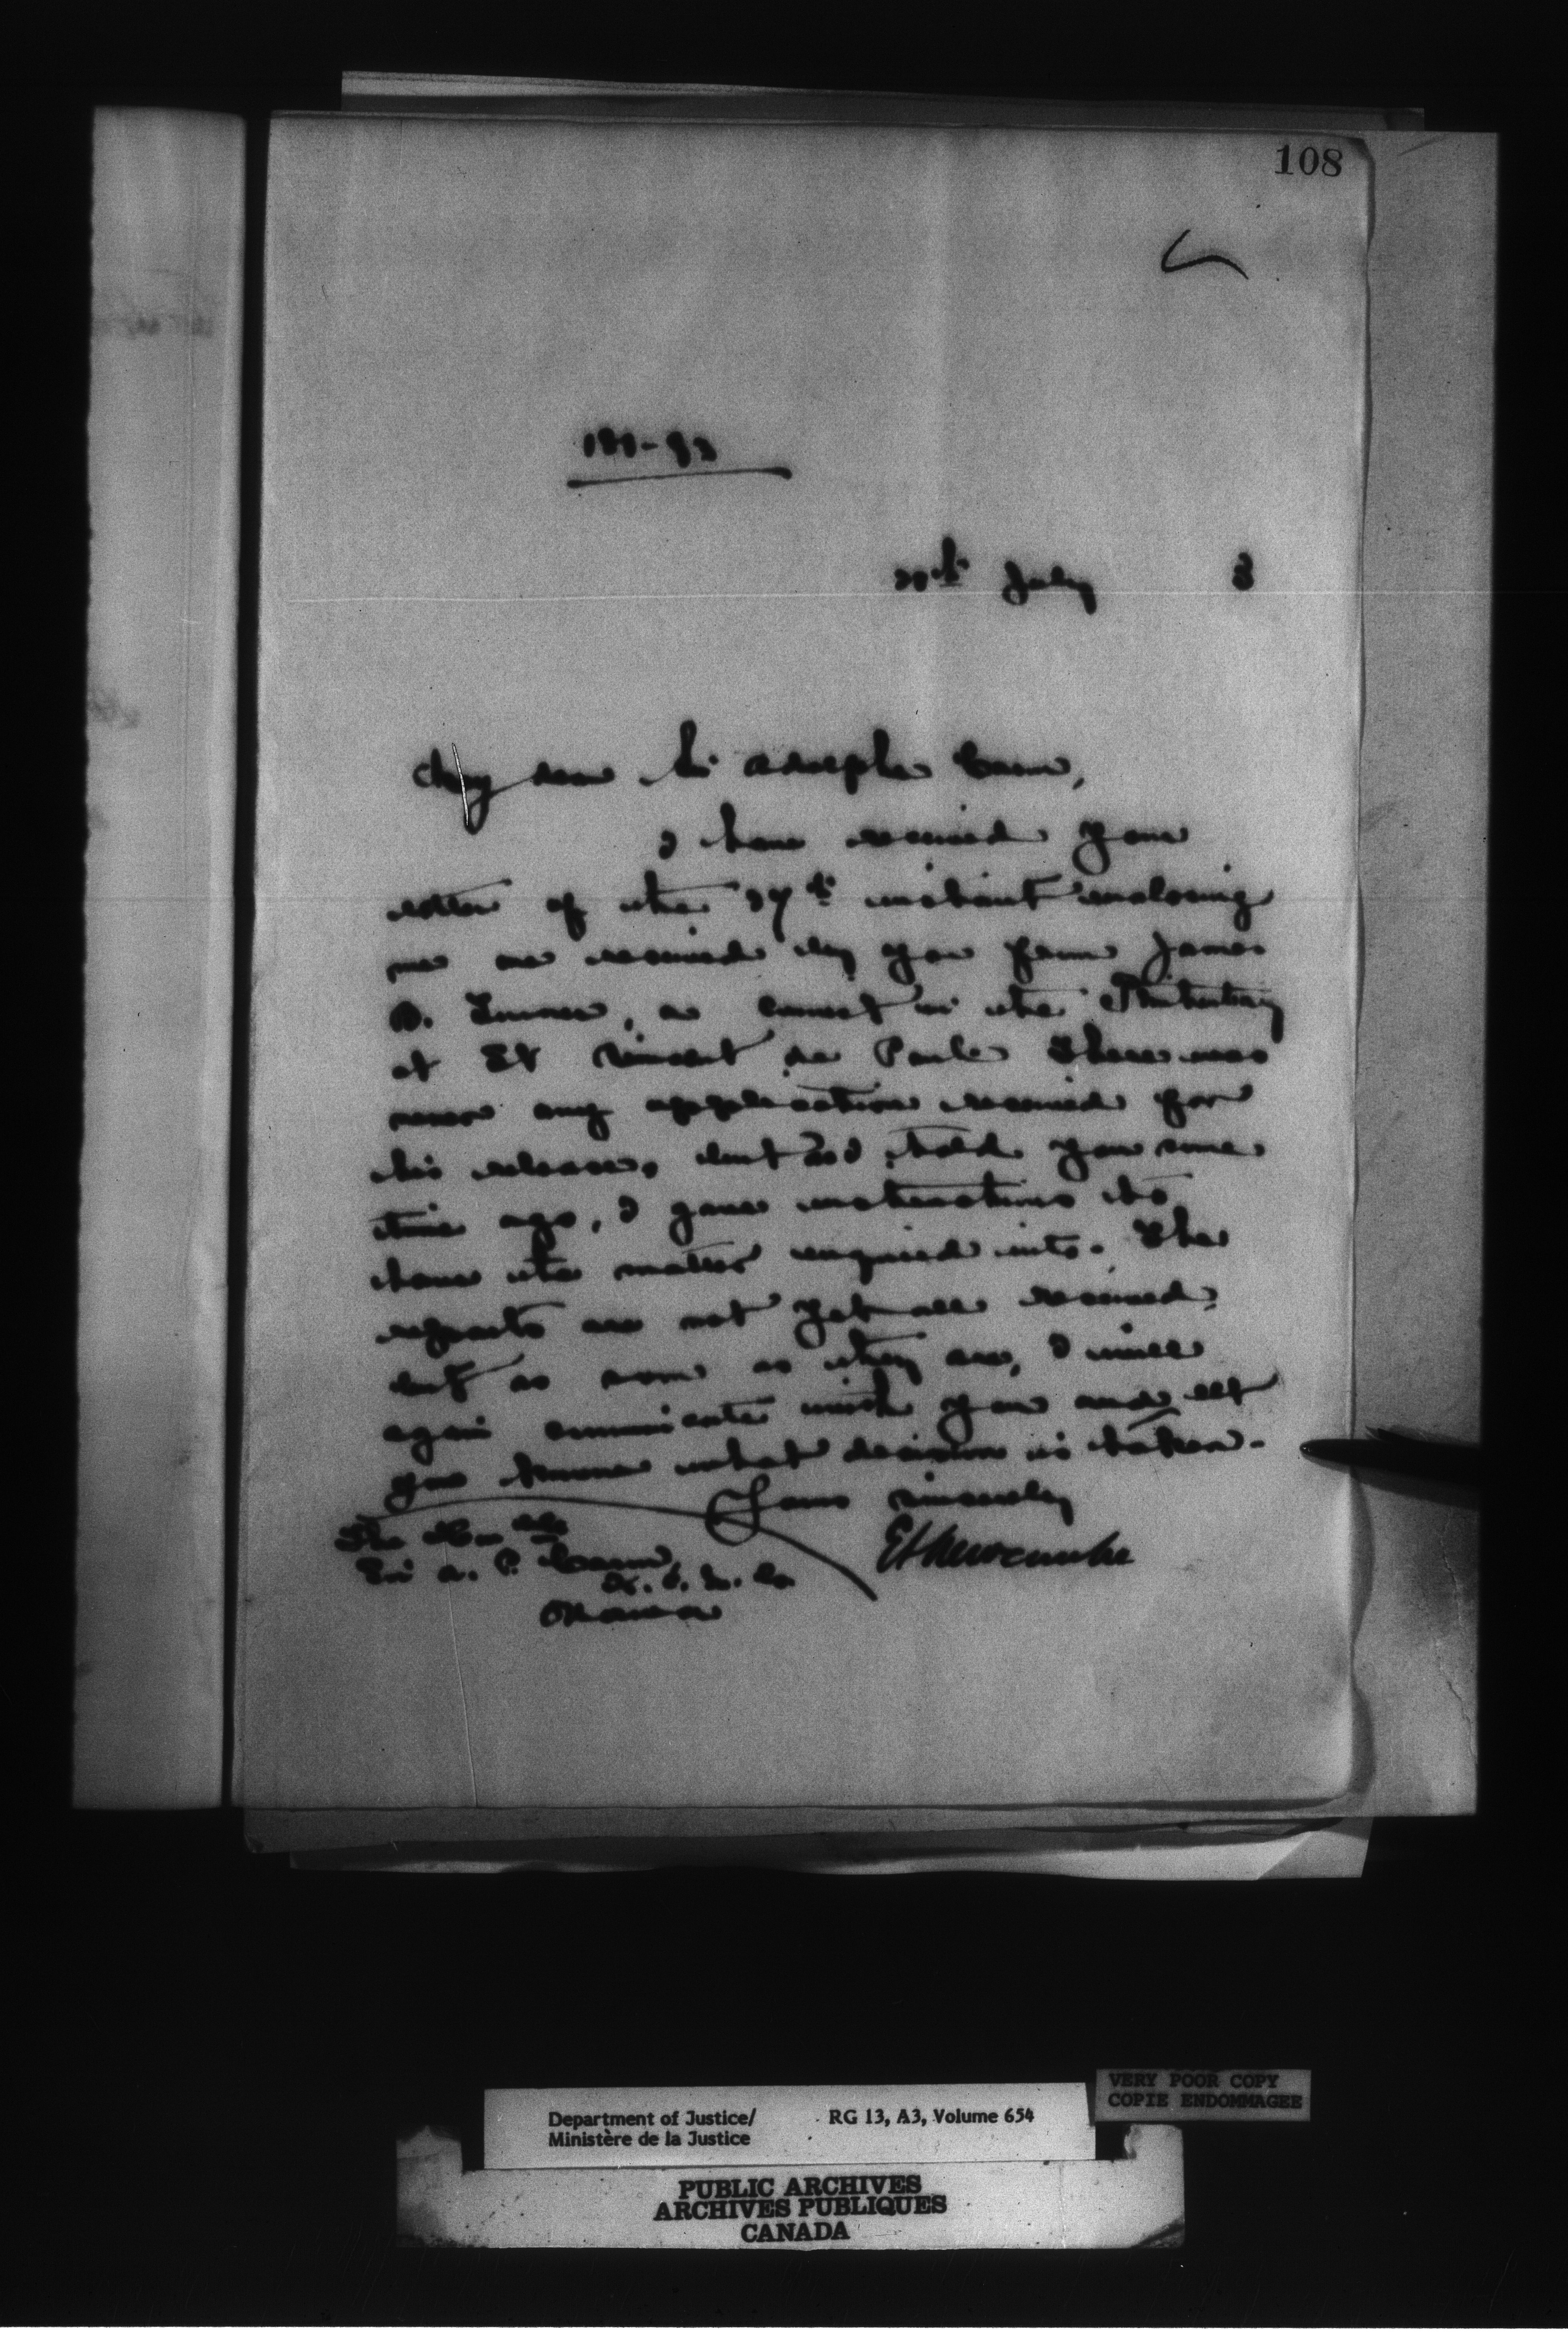 108
July 3
My dear Sir Adolphe Caron,
I have received your
letter of the 27th instant enclosing
me one received by you from James
D. , a convict in the Penitentiary
at St Vincent de Paul. There was
never any application received for
his release, but as I told you some
time ago, I gave instructions to
have the matter enquired into. The
reports are not yet all received,
but as soon as they are, I will
again communicate with you and let
you know what decision is taken.
Yours sincerely
E L Newcombe
The Hon
Sir A. P. Caron,
K. C. M. G.
Ottawa
VERY POOR COPY
COPIE ENDOMMAGEE
Department of Justice/ RG 13, A3, Volume 654
Ministère de la Justice
PUBLIC ARCHIVES
ARCHIVES PUBLIQUES
CANADA